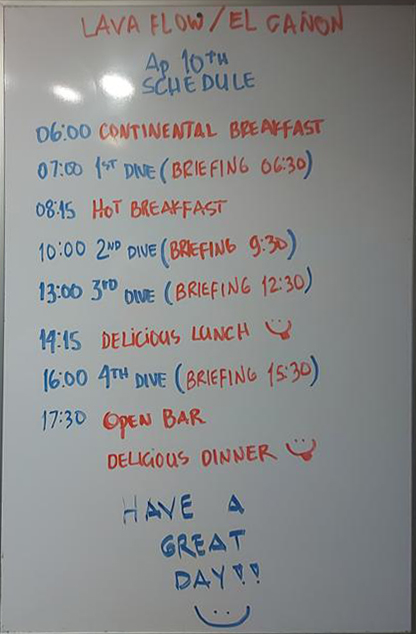 LAVA FLOW/EL CAÑON
Ap 10TH
SCHEDULE
06:00 CONTINENTAL BREAKFAST
07:00 1ST DIVE (BRIEFING 06:30)
08:15 HOT BREAKFAST
10:00 2ND DIVE (BRIEFING 9:30)
13:00 3RD DIVE (BRIEFING 12:30)
14:15 DELICIOUS LUNCH
16:00 4TH DIVE (BRIEFING 15:30)
17:30 OPEN BAR
DELICIOUS DINNER
HAVE A
GREAT
DAY!!